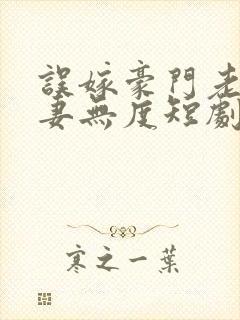 誤嫁豪門老
妻無度短劇
寒之一葉